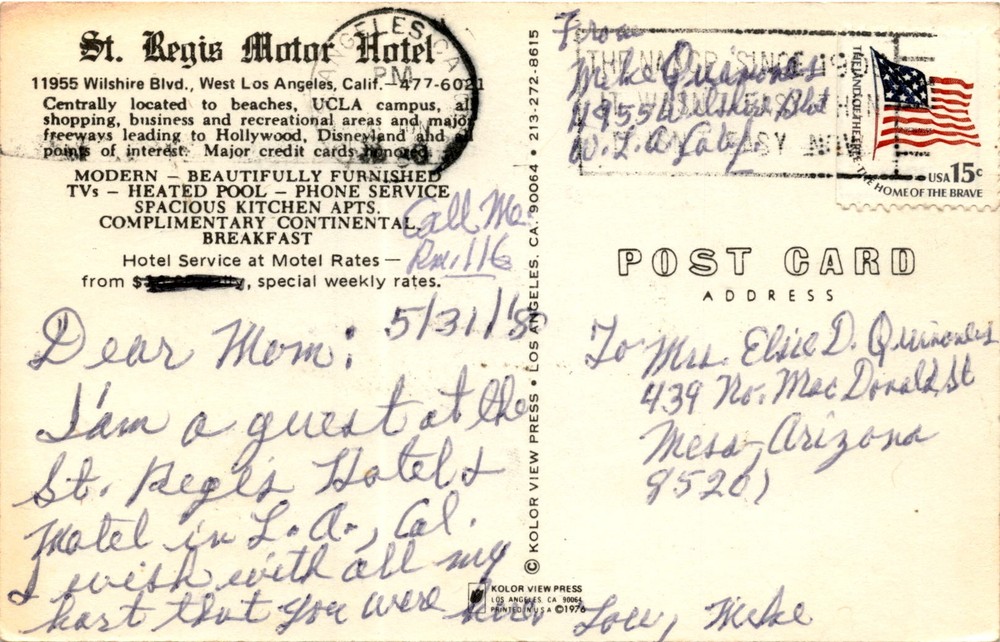 St. Regis Motor Hotel
11955 Wilshire Blvd., West Los Angeles, Calif.—477-6021
Centrally located to beaches, UCLA campus, all
shopping, business and recreational areas and major
freeways leading to Hollywood, Disneyland and all
points of interest. Major credit cards honored.
MODERN — BEAUTIFULLY FURNISHED
TVs — HEATED POOL — PHONE SERVICE
SPACIOUS KITCHEN APTS.
COMPLIMENTARY CONTINENTAL
BREAKFAST
Hotel Service at Motel Rates —
from $ , special weekly rates.
Call Me
Rm. 116
5/31/'80
Dear Mom:
I'am a guest at the
St. Regis Hotel &
Motel in L.A., Cal.
I wish with all my
hart that you were here
Love, Mike
© KOLOR VIEW PRESS • LOS ANGELES, CA. 90064 • 213-272-8615
KOLOR VIEW PRESS
LOS ANGELES, CA 90064
PRINTED IN USA ©1976
ANGELES, CA
PM
From
Mike Quinones
11955 Wilshire Blvd
W. L.A. Calif
THE LAND OF THE FREE • THE HOME OF THE BRAVE
USA 15c
POST CARD
ADDRESS
To Mrs. Elsie D. Quinones
439 No. MacDonald St
Mesa, Arizona
85201